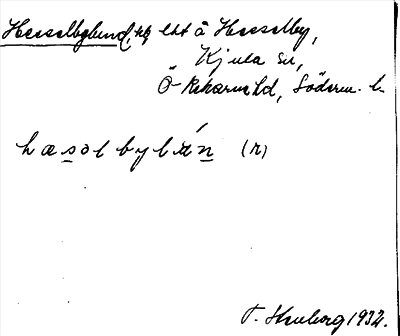 Hesselbylund, lht å Hesselby,
Kjula sn,
Ö Rekarne hd, Söderm. l.
hasolbylún (n)
T. Stenborg 1932.